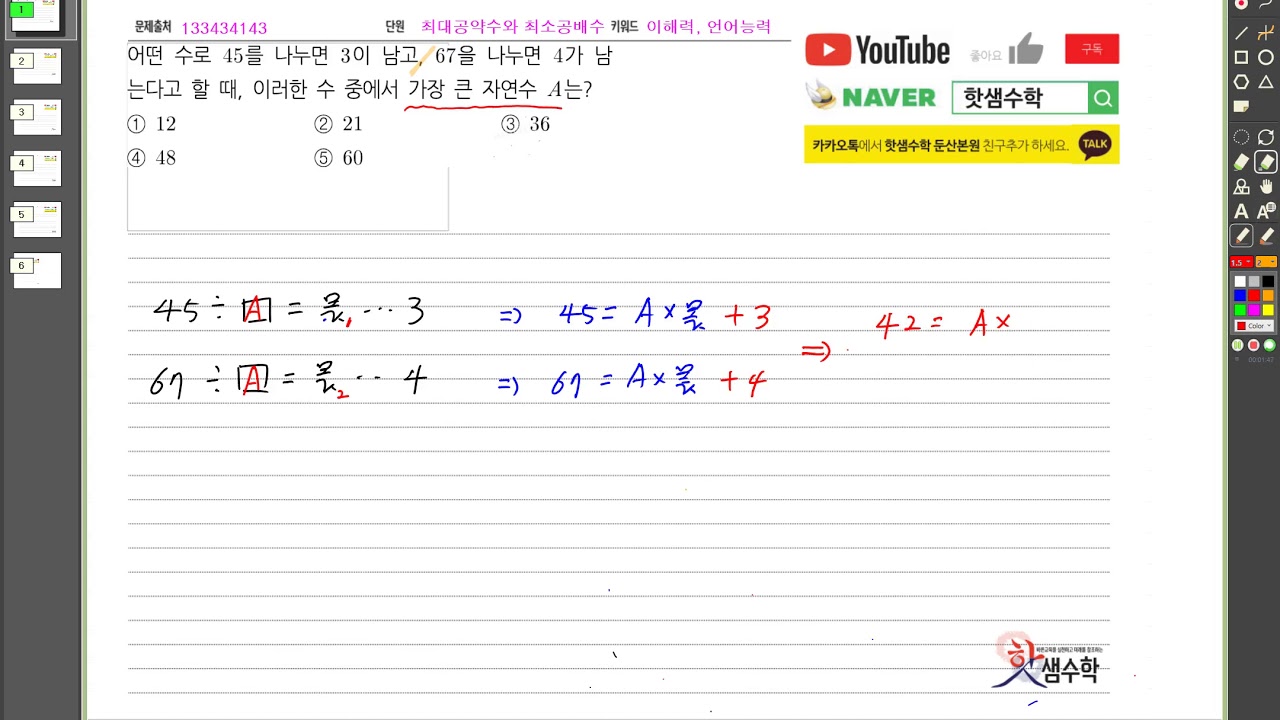 1
2
3
4
5
6
문제출처 133434143 단원 최대공약수와 최소공배수 키워드 이해력, 언어능력
어떤 수로 45를 나누면 3이 남고, 67을 나누면 4가 남
는다고 할 때, 이러한 수 중에서 가장 큰 자연수 A는?
① 12 ② 21 ③ 36
④ 48 ⑤ 60
YouTube 좋아요 구독
NAVER 핫샘수학
카카오톡에서 핫샘수학 둔산본원 친구추가 하세요. TALK
45 ÷ A = 몫1 ··· 3 ⇒ 45 = A × 몫 + 3
67 ÷ A = 몫2 ·· 4 ⇒ 67 = A × 몫 + 4
⇒ 42 = A ×
바른교육을 실현하고 미래를 창조하는
핫샘수학
A A
1.5 2
Color
00:01:42